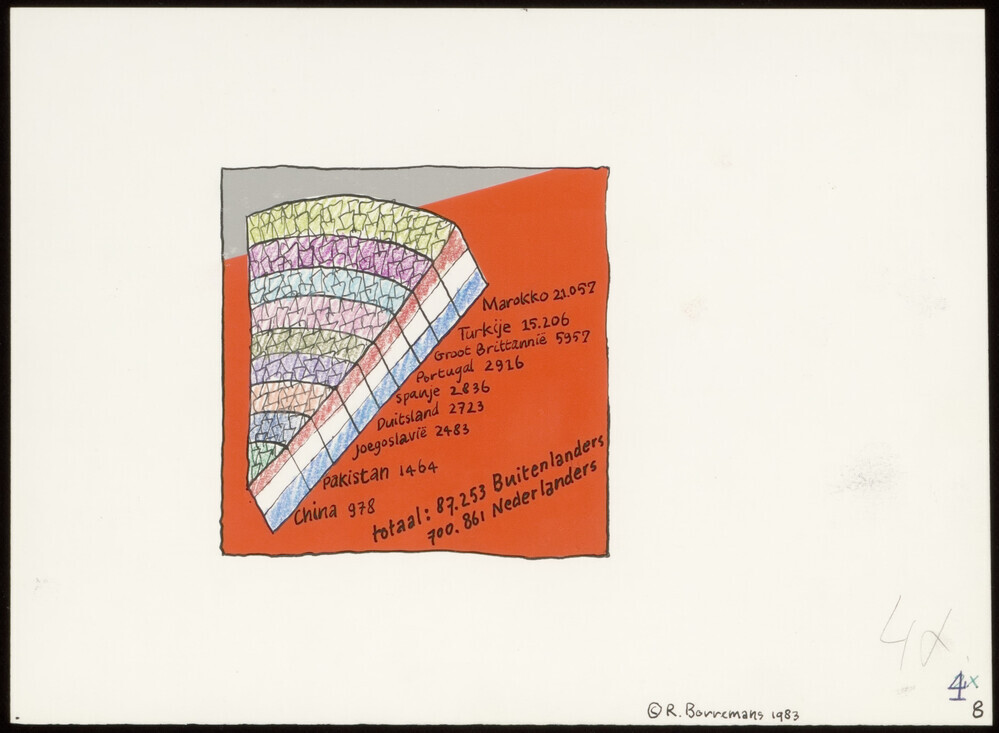 Marokko 21.057
Turkije 15.206
Groot Brittannië 5957
Portugal 2916
Spanje 2836
Duitsland 2723
Joegoslavië 2483
Pakistan 1464
China 978
totaal: 87.253 Buitenlanders
700.861 Nederlanders
4x
4x
8
© R. Borremans 1983